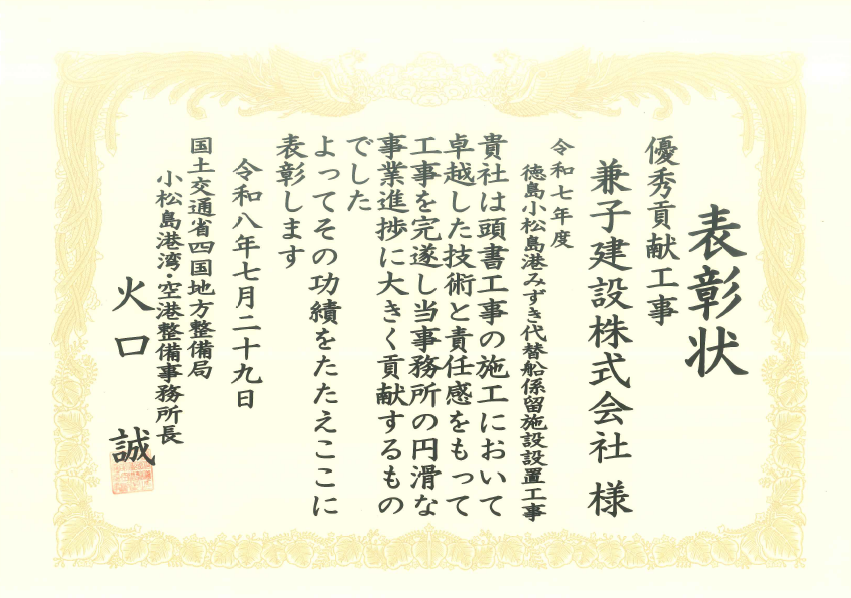 表彰状
優秀貢献工事
兼子建設株式会社 様
令和七年度
徳島小松島港みずき代替船係留施設設置工事
貴社は頭書工事の施工において
卓越した技術と責任感をもって
工事を完遂し当事務所の円滑な
事業進捗に大きく貢献するもの
でした
よってその功績をたたえここに
表彰します
令和八年七月二十九日
国土交通省四国地方整備局
小松島港湾・空港整備事務所長
火口 誠